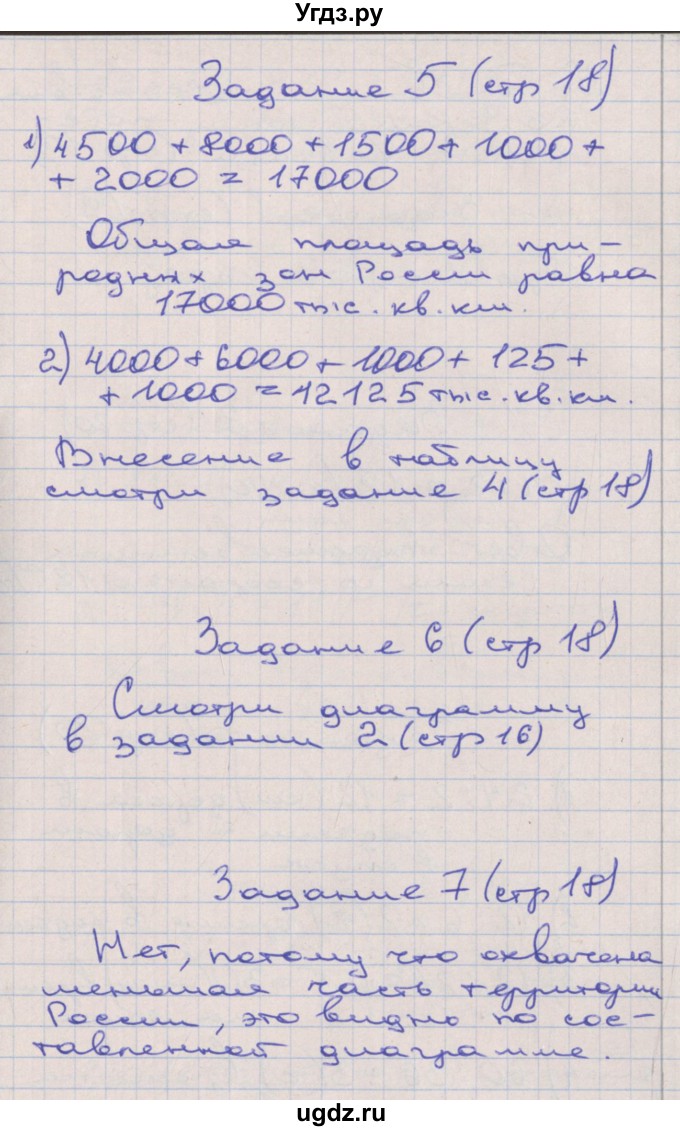 Угдз.ру
Задание 5 (стр 18)
1) 4500 + 8000 + 1500 + 1000 +
+ 2000 = 17000
Общая площадь при-
родных зон России равна
17000 тыс. кв. км.
2) 4000 + 6000 + 1000 + 125 +
+ 1000 = 12125 тыс. кв. км.
Внесение в таблицу
смотри задание 4 (стр 18)
Задание 6 (стр 18)
Смотри диаграмму
в задании 2 (стр 16)
Задание 7 (стр 18)
Нет, потому что охвачена
меньшая часть территории
России, это видно по сос-
тавленной диаграмме.
ugdz.ru